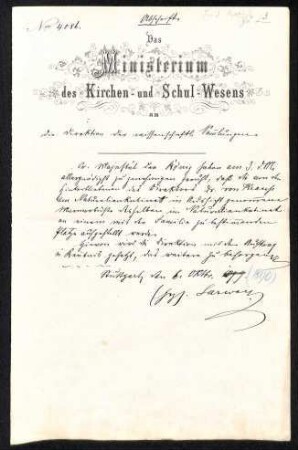 Abschrift.
No 4086.
Das
Ministerium
des Kirchen- und Schul-Wesens
an
die Direktion der wissenschaftl. Sammlungen.
Se. Majestät der König haben am 3. d. M.
allergnädigst zu genehmigen geruht, daß die von den
Hinterbliebenen des Direktors Dr. von Krauss
dem Naturalienkabinet in Aussicht genommene
Marmorbüste desselben im Naturalienkabinet
an einem von der Familie zu bestimmenden
Platze aufgestellt werde.
Hievon wird die Direktion mit dem Auftrag
in Kenntnis gesetzt, das weitere zu besorgen.
Stuttgart, den 6. Oktbr.
(gez.) Sarwey.